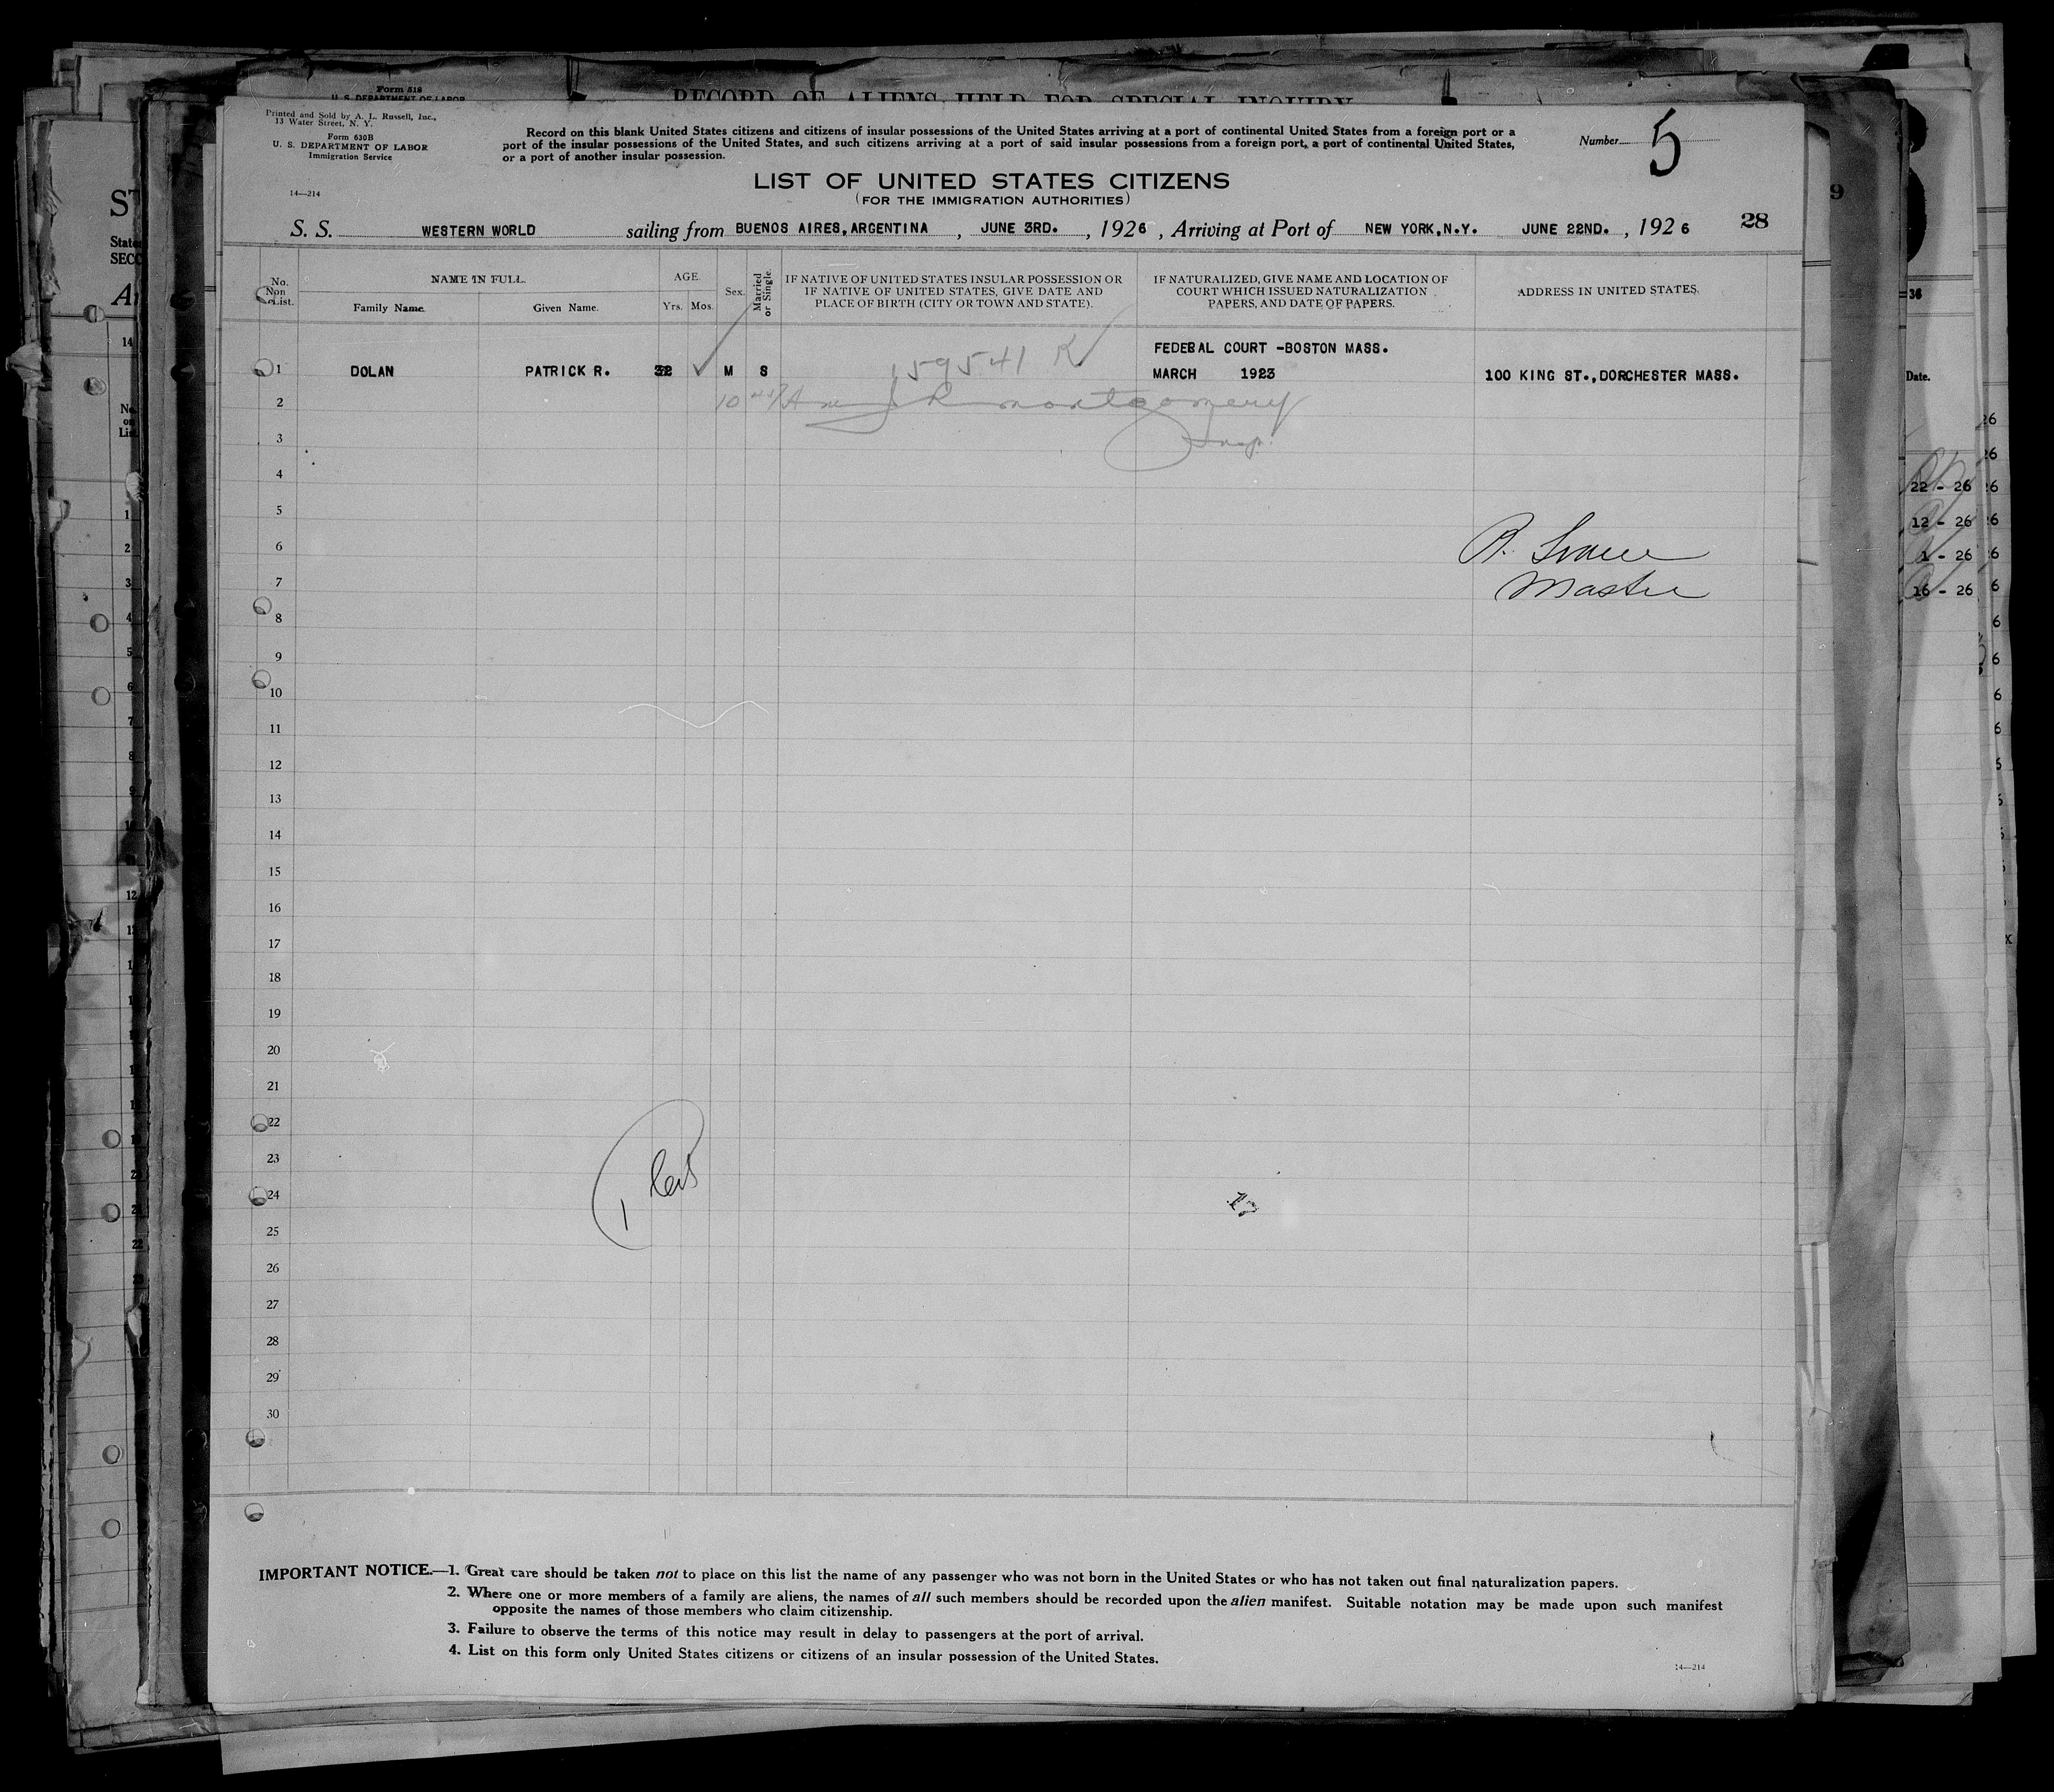 Form 518
U. S. DEPARTMENT OF LABOR
RECORD OF ALIENS HELD FOR SPECIAL INQUIRY
Printed and Sold by A. L. Russell, Inc.,
13 Water Street, N. Y.
Form 630B
U. S. DEPARTMENT OF LABOR
Immigration Service
14—214
Record on this blank United States citizens and citizens of insular possessions of the United States arriving at a port of continental United States from a foreign port or a
port of the insular possessions of the United States, and such citizens arriving at a port of said insular possessions from a foreign port, a port of continental United States,
or a port of another insular possession.
Number 5
LIST OF UNITED STATES CITIZENS
(FOR THE IMMIGRATION AUTHORITIES)
S. S. WESTERN WORLD sailing from BUENOS AIRES, ARGENTINA, JUNE 3RD., 1926, Arriving at Port of NEW YORK, N.Y. JUNE 22ND., 1926 28
No. on List.
NAME IN FULL.
Family Name.
Given Name.
AGE.
Yrs. Mos.
Sex.
Married or Single.
IF NATIVE OF UNITED STATES INSULAR POSSESSION OR
IF NATIVE OF UNITED STATES, GIVE DATE AND
PLACE OF BIRTH (CITY OR TOWN AND STATE).
IF NATURALIZED, GIVE NAME AND LOCATION OF
COURT WHICH ISSUED NATURALIZATION
PAPERS, AND DATE OF PAPERS.
ADDRESS IN UNITED STATES.
FEDERAL COURT -BOSTON MASS.
1 DOLAN PATRICK R. 32 M S 159541 MARCH 1923 100 KING ST., DORCHESTER MASS.
2 Montgomery
3 Insp.
4
5
6
7 Master
8
9
10
11
12
13
14
15
16
17
18
19
20
21
22
23
24
17
25
26
27
28
29
30
IMPORTANT NOTICE.—1. Great care should be taken not to place on this list the name of any passenger who was not born in the United States or who has not taken out final naturalization papers.
2. Where one or more members of a family are aliens, the names of all such members should be recorded upon the alien manifest. Suitable notation may be made upon such manifest
opposite the names of those members who claim citizenship.
3. Failure to observe the terms of this notice may result in delay to passengers at the port of arrival.
4. List on this form only United States citizens or citizens of an insular possession of the United States.
14—214
Date.
22 - 26
12 - 26
1 - 26
16 - 26